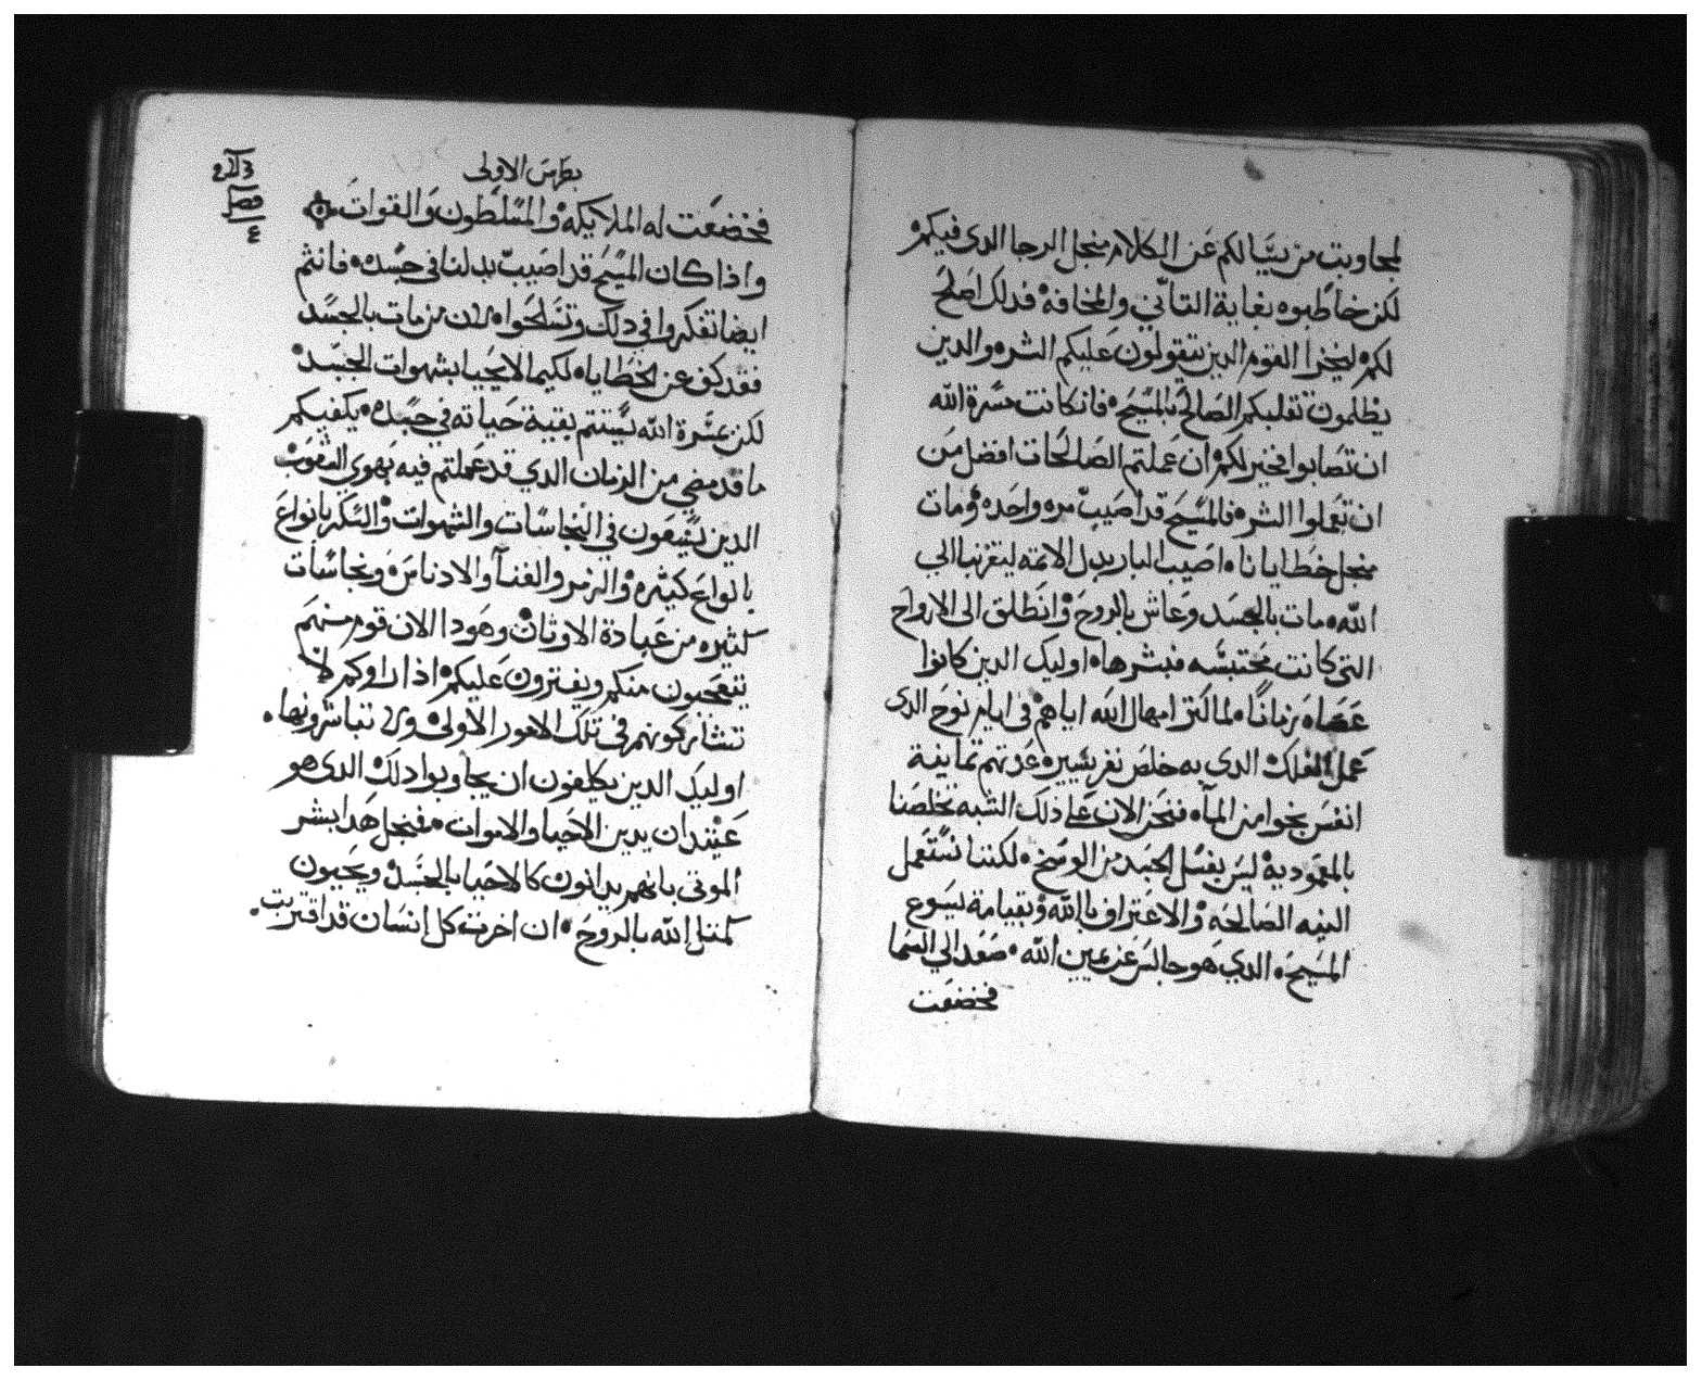 لمجاوبت من يسالكم عن الكلام منجل الرجا الدي فيكم
لكن خاطبوه بغاية التاني والمخافه فدلك اصلح
لكم ليخزا القوم الدين يتقولون عليكم الشر والدين
يظلمون تقلبكم الصالح بالمسيح فانكانت مسرة الله
ان تصابوا فخير لكم ان عملتم الصالحات افضل من
ان تعملوا الشر فالمسيح قد اصيب مره واحده ومات
منجل خطايانا اصيب البار بدل الاثمه ليقربنا الي
الله مات بالجسد وعاش بالروح وانطلق الى الارواح
التى كانت محتبسه فبشرها اوليك الدين كانوا
عصاه زمانًا لما كتر امهال الله اياهم فى ايام نوح الدى
عمل الفلك الدى به خلص نفر يسير عدتهم تمانية
انفس نجوا من المآء فنحن الان على ذلك الشبه تخلصنا
بالمعمودية ليس بغسل الجسد من الوسخ لكننا نستعمل
النيه الصالحه والاعتراف بالله وبقيامة يسوع
المسيح الدي هو جالس عن يمين الله صعد الي السما
فخضعت
بطرس الاولى
فصل
٤
فخضعت له الملايكه والمسلطون والقوات
واذا كان المسيح قد اصيب بدلنا في جسده فانتم
ايضا تفكروا في دلك وتسلحوا لان من مات بالجسد
فقد كف عن الخطايا لكيما لا يحيا بشهوات الجسد
لكن بمسرة الله يستتم بقية حياته في جسده يكفيكم
ما قد مضي من الزمان الدي قد عملتم فيه بهوي الشعوب
الدين يسعون في النجاسات والشهوات والسكر بانواع
بالواع كثيره والزمر والغنآ والادناس ونجاسات
كثيره من عبادة الاوثان وهودا الان قوم منهم
يتعجبون منكم ويفترون عليكم اذا راوكم لا
تشاركونهم في تلك الامور الاولى ولا تباشرونها
اوليك الدين يكلفون ان يجاوبوا دلك الدى هو
عتيد ان يدين الاحيا والاموات فمنجل هدا بشر
الموتى بانهم يدانون كالاحيا بالجسد ويحيون
كمثل الله بالروح ان اخرت كل انسان قد اقتربت